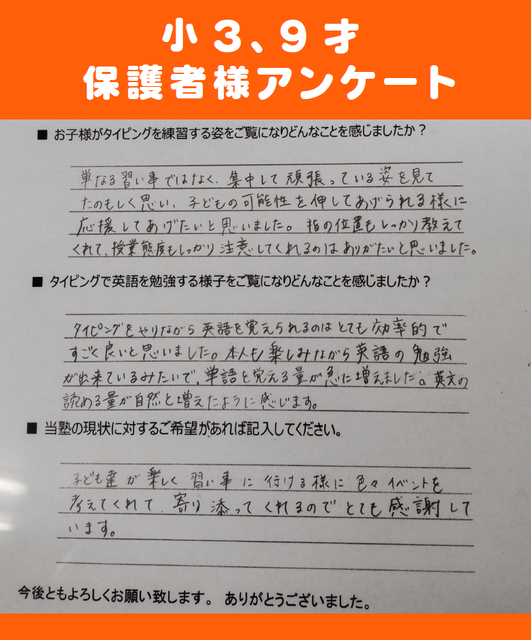 小3、9才
保護者様アンケート
■ お子様がタイピングを練習する姿をご覧になりどんなことを感じましたか？
単なる習い事ではなく、集中して頑張っている姿を見て
たのもしく思い、子どもの可能性を伸してあげられる様に
応援してあげたいと思いました。指の位置もしっかり教えて
くれて、授業態度もしっかり注意してくれるのはありがたいと思いました。
■ タイピングで英語を勉強する様子をご覧になりどんなことを感じましたか？
タイピングをやりながら英語を覚えられるのはとても効率的で
すごく良いと思いました。本人も楽しみながら英語の勉強
が出来ているみたいで、単語を覚える量が急に増えました。英文の
読める量が自然と増えたように感じます。
■ 当塾の現状に対するご希望があれば記入してください。
子ども達が楽しく習い事に行ける様に色々イベントを
考えてくれて、寄り添ってくれるのでとても感謝して
います。
今後ともよろしくお願い致します。 ありがとうございました。